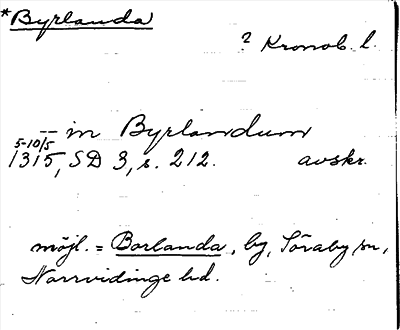 *Byrlanda
? Kronob. l.
-- in Byrlandum
5-10/5
1315, SD 3, s. 212. avskr.
möjl. = Borlanda, by, Söraby sn,
Norrvidinge hd.